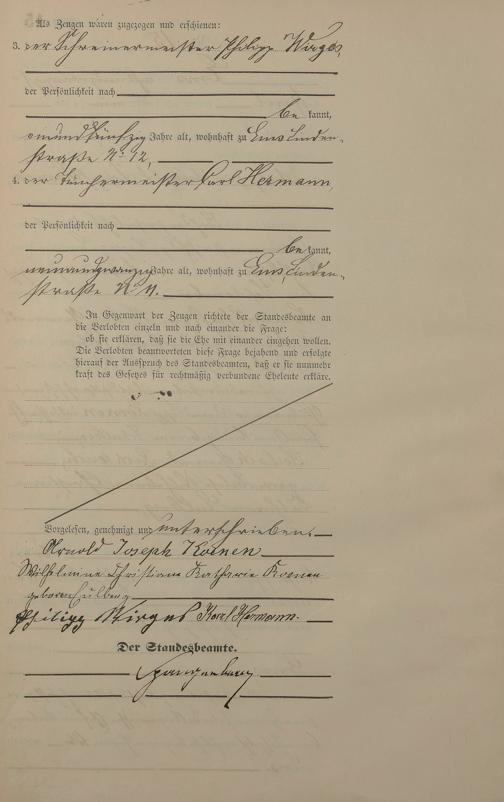 Als Zeugen waren zugezogen und erschienen:
3. der Schreinermeister Philipp Wirges,
der Persönlichkeit nach
be kannt,
einundfünfzig Jahre alt, wohnhaft zu Ems, Linden-
straße No 12,
4. der Tünchermeister Carl Hermann,
der Persönlichkeit nach
be kannt,
neunundzwanzig Jahre alt, wohnhaft zu Ems, Linden-
straße No
In Gegenwart der Zeugen richtete der Standesbeamte an
die Verlobten einzeln und nach einander die Frage:
ob sie erklären, daß sie die Ehe mit einander eingehen wollen.
Die Verlobten beantworteten diese Frage bejahend und erfolgte
hierauf der Ausspruch des Standesbeamten, daß er sie nunmehr
kraft des Gesetzes für rechtmäßig verbundene Eheleute erkläre.
Vorgelesen, genehmigt und unterschrieben.
Arnold Joseph Koenen
Wilhelmine Christiane Katharie Koenen
geborene
Philipp Wirges Karl Hermann.
Der Standesbeamte.
Spangenberg